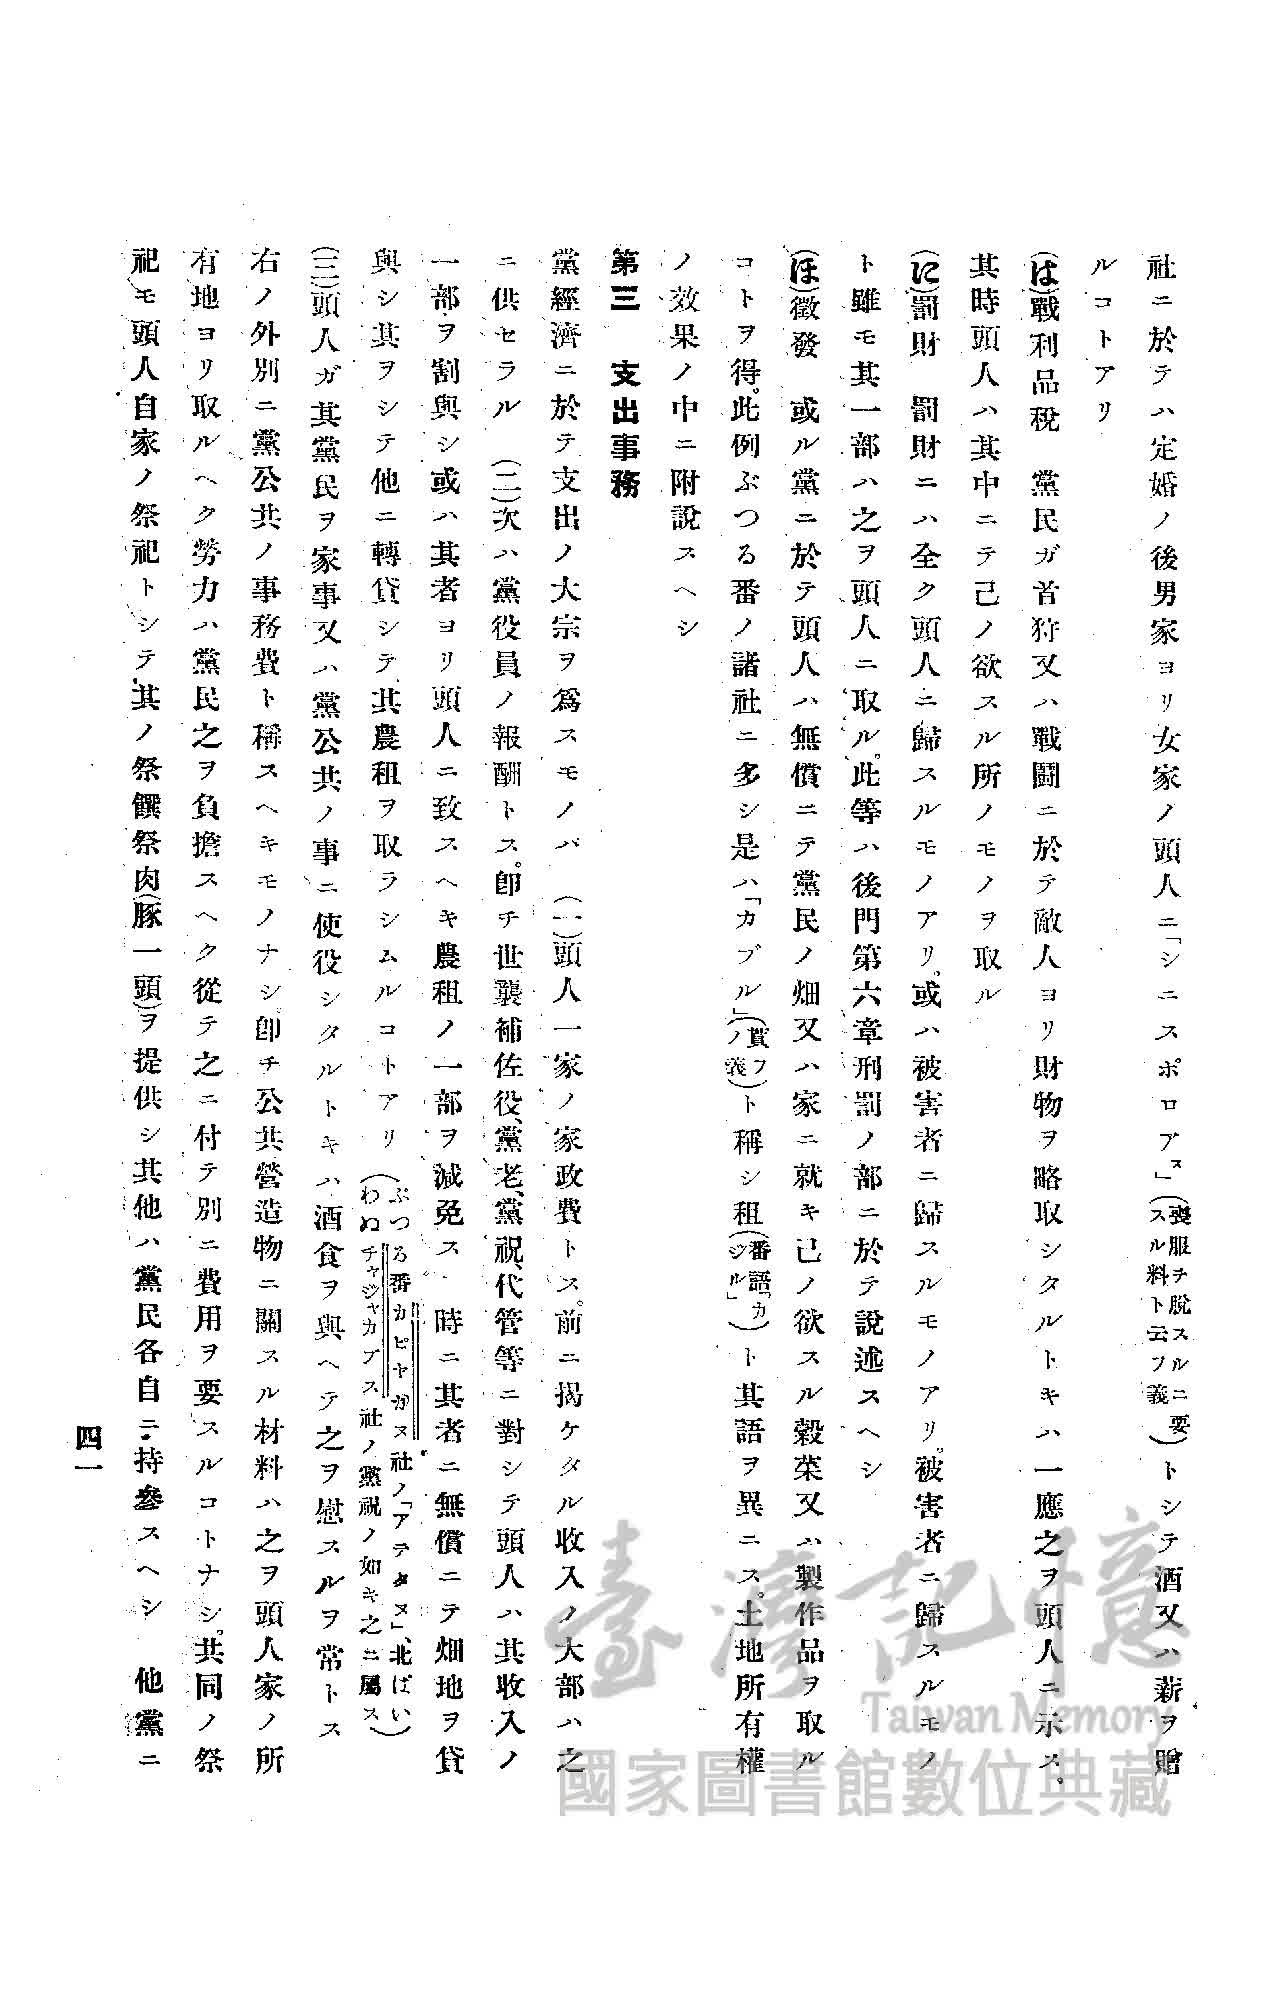 社ニ於テハ定婚ノ後男家ヨリ女家ノ頭人ニ「シニスポロアス」(喪服ヲ脱スルニ要スル料ト云フ義)トシテ酒又ハ薪ヲ贈
ルコトアリ
(は)戰利品稅　黨民ガ首狩又ハ戰鬪ニ於テ敵人ヨリ財物ヲ略取シタルトキハ一應之ヲ頭人ニ示ス。
其時頭人ハ其中ニテ己ノ欲スル所ノモノヲ取ル
(に)罰財　罰財ニハ全ク頭人ニ歸スルモノアリ。或ハ被害者ニ歸スルモノアリ。被害者ニ歸スルモノ
ト雖モ其一部ハ之ヲ頭人ニ取ル。此等ハ後門第六章刑罰ノ部ニ於テ說述スヘシ
(ほ)徵發　或ル黨ニ於テ頭人ハ無償ニテ黨民ノ畑又ハ家ニ就キ己ノ欲スル穀菜又ハ製作品ヲ取ル
コトヲ得。此例ぶつる番ノ諸社ニ多シ是ハ「カブル」(貰フノ義)ト稱シ租(番語「カジル」)ト其語ヲ異ニス。土地所有權
ノ效果ノ中ニ附說スヘシ
第三　支出事務
黨經濟ニ於テ支出ノ大宗ヲ爲スモノバ　(一)頭人一家ノ家政費トス。前ニ揭ケタル收入ノ大部ハ之
ニ供セラル　(二)次ハ黨役員ノ報酬トス。卽チ世襲補佐役、黨老、黨祝、代管等ニ對シテ頭人ハ其收入ノ
一部ヲ割與シ或ハ其者ヨリ頭人ニ致スヘキ農租ノ一部ヲ減免ス、時ニ其者ニ無償ニテ畑地ヲ貸
與シ其ヲシテ他ニ轉貸シテ其農租ヲ取ラシムルコトアリ(ぶつる番カピヤガヌ社ノ「アテタヌ」、北ぱいわぬチヤジヤカブス社ノ黨祝ノ如キ之ニ屬ス)
(三)頭人ガ其黨民ヲ家事又ハ黨公共ノ事ニ使役シタルトキハ酒食ヲ與ヘテ之ヲ慰スルヲ常トス
右ノ外別ニ黨公共ノ事務費ト稱スヘキモノナシ。卽チ公共營造物ニ關スル材料ハ之ヲ頭人家ノ所
有地ヨリ取ルヘク勞力ハ黨民之ヲ負擔スヘク從テ之ニ付テ別ニ費用ヲ要スルコトナシ。共同ノ祭
祀モ頭人自家ノ祭祀トシテ其ノ祭饌祭肉(豚一頭)ヲ提供シ其他ハ黨民各自ニ持參スヘシ　他黨ニ
四一
臺灣記憶
Taiwan Memory
國家圖書館數位典藏